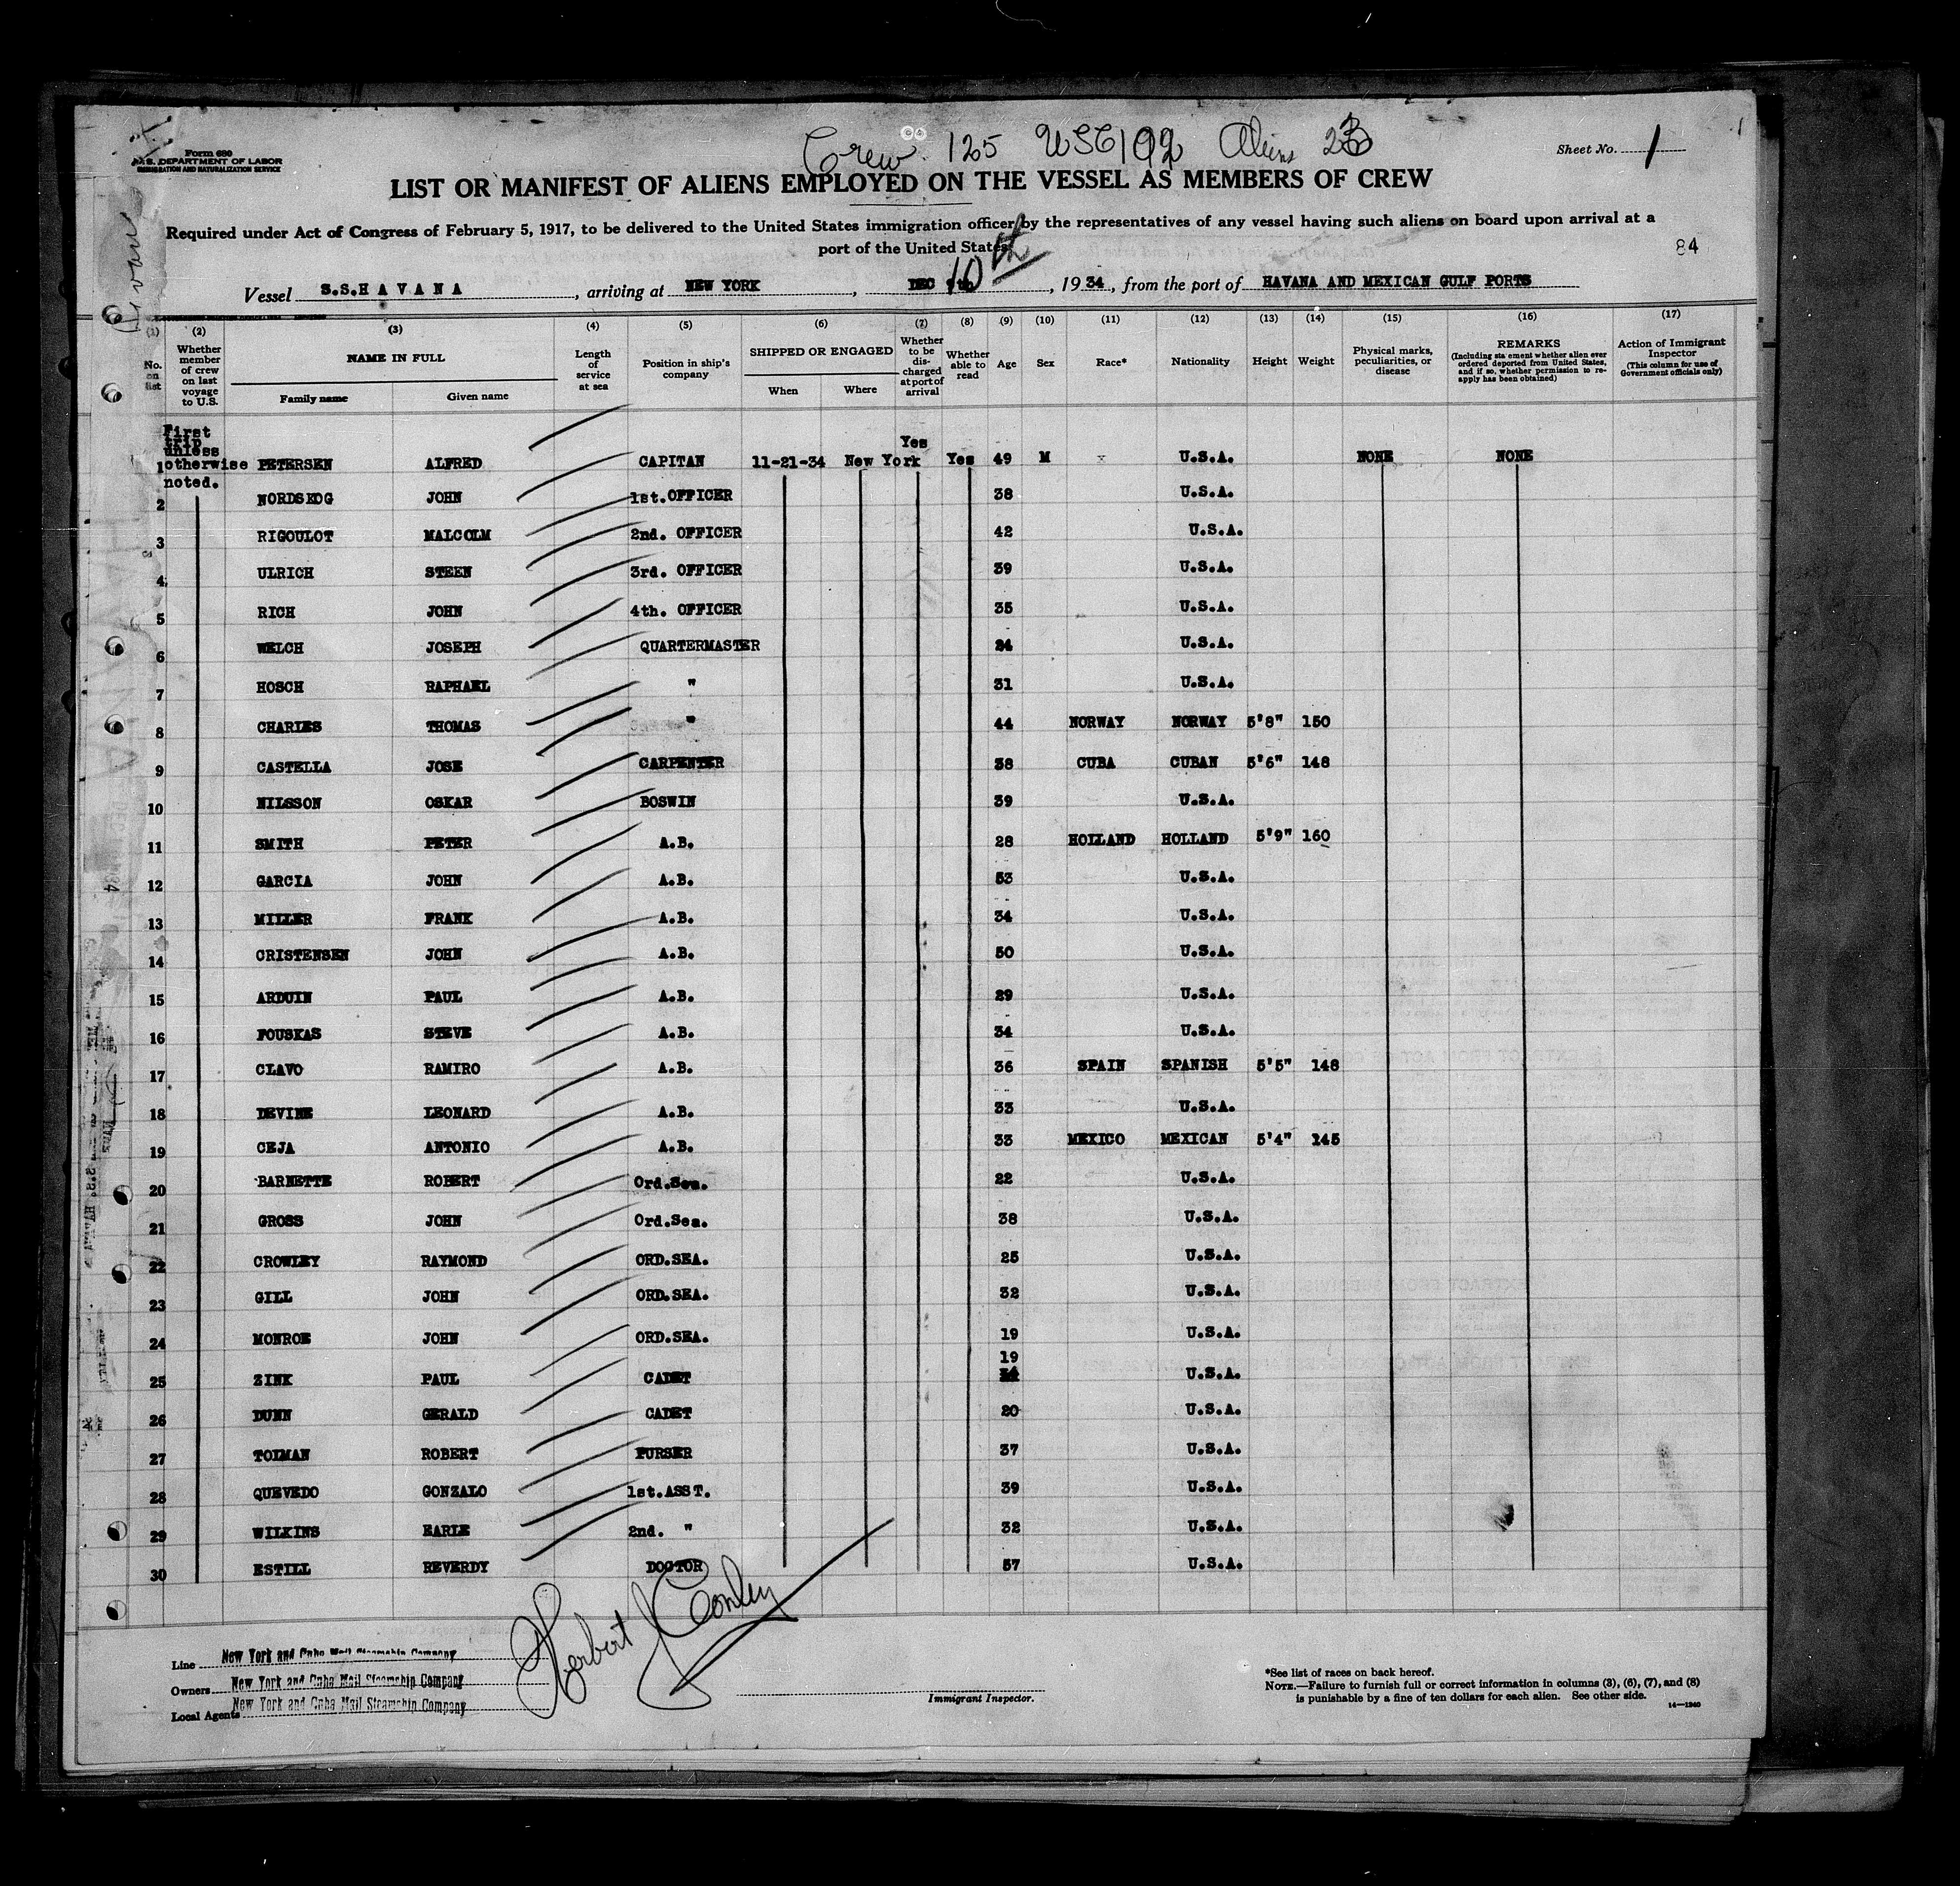 Crew 125 USC 102 Aliens 23
Form 680
U.S. DEPARTMENT OF LABOR
IMMIGRATION AND NATURALIZATION SERVICE
Sheet No. 1
LIST OR MANIFEST OF ALIENS EMPLOYED ON THE VESSEL AS MEMBERS OF CREW
Required under Act of Congress of February 5, 1917, to be delivered to the United States immigration officer by the representatives of any vessel having such aliens on board upon arrival at a
port of the United States
84
Vessel S.S.HAVANA, arriving at NEW YORK, DEC 10th, 1934, from the port of HAVANA AND MEXICAN GULF PORTS
(1) (2) (3) (4) (5) (6) (7) (8) (9) (10) (11) (12) (13) (14) (15) (16) (17)
No. on list
Whether member of crew on last voyage to U.S.
NAME IN FULL
Family name Given name
Length of service at sea
Position in ship's company
SHIPPED OR ENGAGED
When Where
Whether to be discharged at port of arrival
Whether able to read
Age Sex Race* Nationality Height Weight
Physical marks, peculiarities, or disease
REMARKS
(Including statement whether alien ever ordered deported from United States, and if so, whether permission to reapply has been obtained)
Action of Immigrant Inspector
(This column for use of Government officials only)
First trip unless otherwise noted.
1 PETERSEN ALFRED CAPITAN 11-21-34 New York Yes Yes 49 M U.S.A. NONE NONE
2 NORDSKOG JOHN 1st.OFFICER 38 U.S.A.
3 RIGOULOT MALCOLM 2nd. OFFICER 42 U.S.A.
4 ULRICH STEEN 3rd. OFFICER 39 U.S.A.
5 RICH JOHN 4th. OFFICER 35 U.S.A.
6 WELCH JOSEPH QUARTERMASTER 24 U.S.A.
7 HOSCH RAPHAEL " 31 U.S.A.
8 CHARLES THOMAS " 44 NORWAY NORWAY 5'8" 150
9 CASTELLA JOSE CARPENTER 38 CUBA CUBAN 5'6" 148
10 NILSSON OSKAR BOSWIN 39 U.S.A.
11 SMITH PETER A.B. 28 HOLLAND HOLLAND 5'9" 160
12 GARCIA JOHN A.B. 53 U.S.A.
13 MILLER FRANK A.B. 34 U.S.A.
14 CRISTENSEN JOHN A.B. 50 U.S.A.
15 ARDUIN PAUL A.B. 29 U.S.A.
16 FOUSKAS STEVE A.B. 34 U.S.A.
17 CLAVO RAMIRO A.B. 36 SPAIN SPANISH 5'5" 148
18 DEVINE LEONARD A.B. 33 U.S.A.
19 CEJA ANTONIO A.B. 33 MEXICO MEXICAN 5'4" 145
20 BARNETTE ROBERT Ord.Sea. 22 U.S.A.
21 GROSS JOHN Ord.Sea. 38 U.S.A.
22 CROWLEY RAYMOND ORD.SEA. 25 U.S.A.
23 GILL JOHN ORD.SEA. 32 U.S.A.
24 MONROE JOHN ORD.SEA. 19 U.S.A.
25 ZINK PAUL CADET 19 U.S.A.
26 DUNN GERALD CADET 20 U.S.A.
27 TOLMAN ROBERT PURSER 37 U.S.A.
28 QUEVEDO GONZALO 1st.ASST. 39 U.S.A.
29 WILKINS EARLE 2nd. " 32 U.S.A.
30 ESTILL REVERDY DOCTOR 57 U.S.A.
Herbert J Conley
Line New York and Cuba Mail Steamship Company
Owners New York and Cuba Mail Steamship Company
Local Agents New York and Cuba Mail Steamship Company
Immigrant Inspector.
*See list of races on back hereof.
NOTE.—Failure to furnish full or correct information in columns (3), (6), (7), and (8)
is punishable by a fine of ten dollars for each alien. See other side.
14—1240